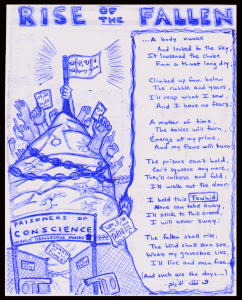 RISE OF THE FALLEN
...A body awoke
And looked to the sky,
It loosened the choke
From a throat long dry.
Climbed up from below
The rubble and years,
I'll reap what I sow
And I have no fears.
A matter of time,
The tables will turn,
Emerge at my prime,
And my flame will burn.
The prisons can't hold,
Can't squeeze any more,
They'll collapse and fold;
I'll walk out the door.
I hold this Tawhid
None can take away,
I'll stick to this creed,
I will never sway.
The fallen shall rise,
The blind shall soon see,
Where my gravestone lies,
I'll live and man free
And such are the days...
PRISONERS OF
CONSCIENCE
HIGHLY DANGEROUS MINDS